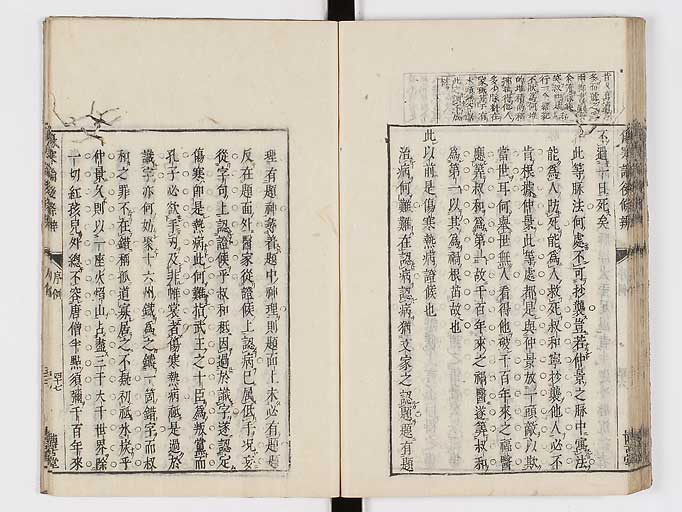 不過一日死矣
此等脉法何處不可抄襲豈若仲景之脉中寓法
能爲人防死能爲人救死叔和寧抄襲他人必不
肯根據仲景此等處都是與仲景放一頭敵以欺
當世耳何舉世無人看得他破千百年來之福醫
應筭叔和爲第一故千百年來之福醫遂筭叔和
爲第一以其爲福根苗故也
此以前是傷寒熱病證候也
治病何難難在認病認病猶文家之認題題有題
理有題神務着題中神理則題面上未必有題
反在題面外醫家從證候上認病已屬低手况妄
從字句上認證候乎叔和秪因過於識字遂認定
傷寒卽是熱病此何難指武王之十臣爲叛黨而
孔子必欲手刃及非帷裳者傷寒熱病秪是過於
識字亦何妨案十六州鐵爲之鑄一箇錯字而叔
和之罪不在鐵稱孤道寡居之不疑初秪水炭乎
仲景久則以一座火熖山占盡三千大千世界除
一切紅孩兒外總不容唐僧半點須彌千百年來
傷寒論後條辨
序例
四十七